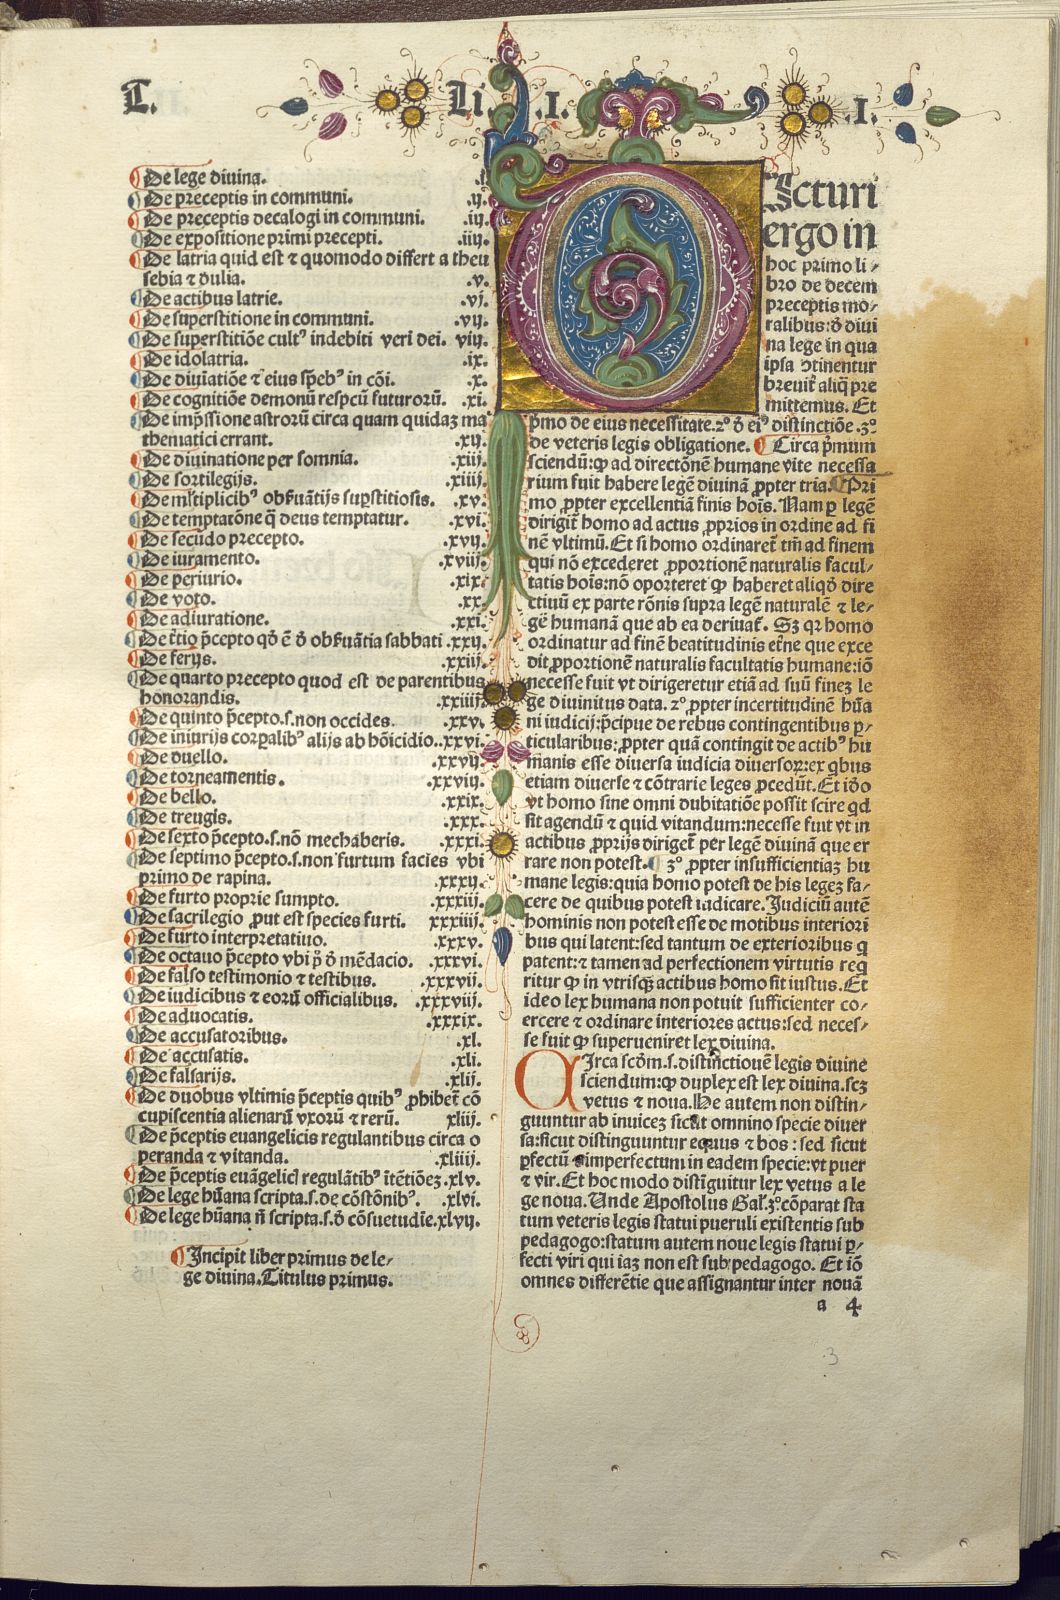 T. Li .I. .I.
De lege diuina. .j.
De preceptis in communi. .ij.
De preceptis decalogi in communi. .iij.
De expositione primi precepti. .iiij.
De latria quid est ⁊ quomodo differt a theu
sebia ⁊ dulia. .v.
De actibus latrie. .vj.
De superstitione in communi. .vij.
De superstitiōe cultꝰ indebiti veri dei. viij.
De idolatria. .ix.
De diuinatiōe ⁊ eius spēbꝰ in cōi. .x.
De cognitiōe demonū respcū futurorū. .xi.
De imp̄ssione astrorū circa quam quidaꝫ ma
thematici errant. .xij.
De diuinatione per somnia. .xiij.
De sortilegijs. .xiiij.
De ml̄tiplicibꝰ obẜuātijs suꝑstitiosis. .xv.
De temptatōne q̄ deus temptatur. .xvi.
De secūdo precepto. .xvij.
De iuramento. .xviij.
De periurio. .xix.
De voto. .xx.
De adiuratione. .xxi.
De t̄tio p̄cepto qō ē ō obẜuātia sabbati .xxij.
De ferijs. .xxiij.
De quarto precepto quod est de parentibus
honorandis. .xxiiij.
De quinto p̄cepto.s.non occides. .xxv.
De iniurijs corꝑalibꝰ alijs ab hōicidio..xxvi.
De duello. .xxvij.
De torneamentis. .xxviij.
De bello. .xxix.
De treugis. .xxx.
De sexto p̄cepto.s.nō mechaberis. .xxxi.
De septimo p̄cepto.s.non furtum facies vbi
primo de rapina. .xxxij.
De furto proprie sumpto. .xxxiij.
De sacrilegio ꝓut est species furti. .xxxiiij.
De furto interpretatiuo. .xxxv.
De octauo p̄cepto vbi p̄ ō mēdacio. .xxxvi.
De falso testimonio ⁊ testibus. .xxxvij.
De iudicibus ⁊ eorū officialibus. .xxxviij.
De aduocatis. .xxxix.
De accusatoribus. .xl.
De accusatis. .xli.
De falsarijs. .xlij.
De duobus vltimis p̄ceptis quibꝰ ꝓhibet̄ cō
cupiscentia alienarū vxorū ⁊ rerū. xliij.
De p̄ceptis euangelicis regulantibus circa o
peranda ⁊ vitanda. .xliiij.
De p̄ceptis euāgelicꝭ regulātibꝰ ītētiōeꝫ .xlv.
De lege hūana scripta.s.de cōstōnibꝰ. .xlvi.
De lege hūana n̄ scripta.s.ō cōsuetudīe.xlvij.
Incipit liber primus de le⸗
ge diuina. Titulus primus.
Acturi
ergo in
hoc primo li⸗
bro de decem
preceptis mo⸗
ralibus:ō diui
na lege in qua
ipsa ↄtinentur
breuit̄ aliq̄ pre
mittemus. Et
p̄mo de eius necessitate.2º ō eiꝰ distinctiōe.3º
de veteris legis obligatione. Circa p̄mum
sciendū:ꝙ ad directōnē humane vite necessa
rium fuit habere legē diuinā ꝓpter tria. Pri
mo ꝓpter excellentiā finis hoīs. Nam ꝑ legē
dirigit̄ homo ad actus ꝓprios in ordine ad fi
nē vltimū. Et si homo ordinaret̄ tm̄ ad finem
qui nō excederet ꝓportionē naturalis facul⸗
tatis hoīs:nō oporteret ꝙ haberet aliqō dire
ctiuū ex parte rōnis supra legē naturalē ⁊ le⸗
gē humanā que ab ea deriuat̄. Sꝫ qꝛ homo
ordinatur ad finē beatitudinis et̄ne que exce
dit ꝓportionē naturalis facultatis humane:iō
necesse fuit vt dirigeretur etiā ad suū fineꝫ le
ge diuinitus data. 2º ꝓpter incertitudinē hūa
ni iudicij:p̄cipue de rebus contingentibus ꝑ⸗
ticularibus:ꝓpter quā contingit de actibꝰ hu
manis esse diuersa iudicia diuersoꝝ:ex qbus
etiam diuerse ⁊ cōtrarie leges ꝓcedūt. Et iōo
vt homo sine omni dubitatiōe possit scire qd
sit agendū ⁊ quid vitandum:necesse fuit vt in
actibus ꝓprijs diriget̄ per legē diuinā que er
rare non potest. 3º ꝓpter insufficientiaꝫ hu
mane legis:quia homo potest de his legeꝫ fa⸗
cere de quibus potest iudicare. Iudiciū autē
hominis non potest esse de motibus interiori
bus qui latent:sed tantum de exterioribus q
patent:⁊ tamen ad perfectionem virtutis req
ritur ꝙ in vtrisqꝫ actibus homo sit iustus. Et
ideo lex humana non potuit sufficienter co⸗
ercere ⁊ ordinare interiores actus:sed neces⸗
se fuit ꝙ superueniret lex diuina.
CIrca scōm.s.distinctionē legis diuine
sciendum:ꝙ duplex est lex diuina.scꝫ
vetus ⁊ noua. He autem non distin⸗
guuntur ab inuiceꝫ sicut omnino specie diuer
sa:sicut distinguuntur equus ⁊ bos : sed sicut
ꝑfectū ⁊ imperfectum in eadem specie:vt puer
⁊ vir. Et hoc modo distīguitur lex vetus a le
ge noua. Unde Apostolus Gal.3º.cōparat sta
tum veteris legis statui pueruli existentis sub
pedagogo:statum autem noue legis statui ꝑ⸗
fecti viri qui iaꝫ non est sub pedagogo. Et iō
omnes differētie que assignantur inter nouā
a 4
3